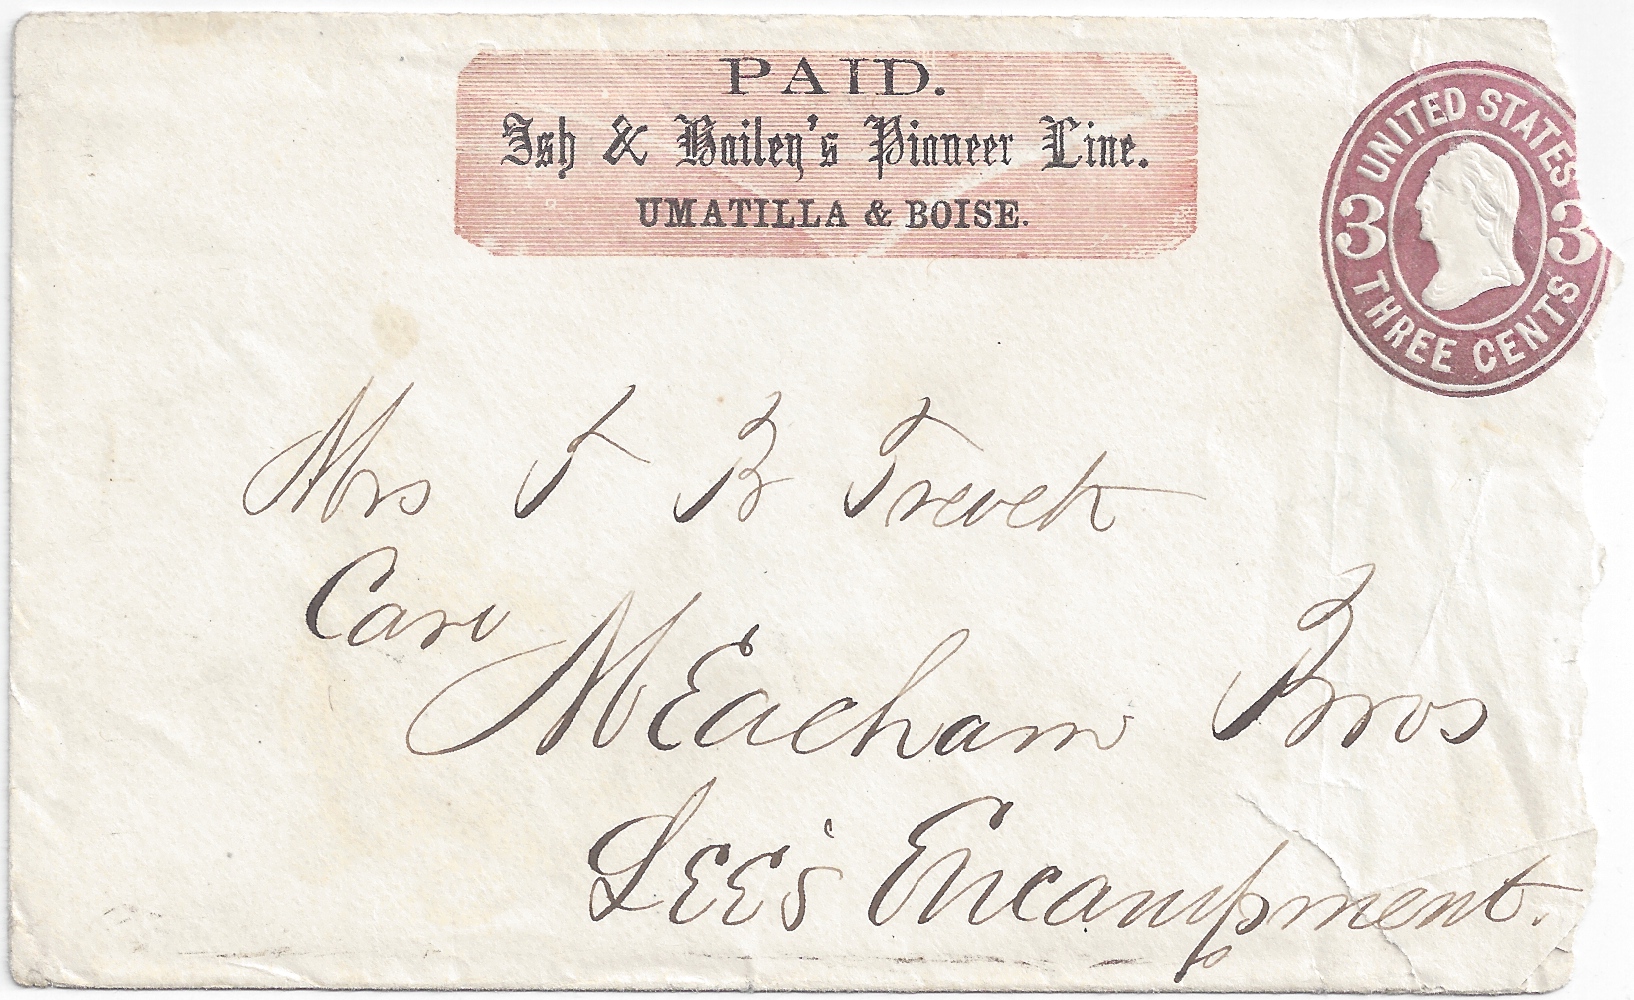 PAID.
Ish & Hailey's Pioneer Line.
UMATILLA & BOISE.
UNITED STATES
3 3
THREE CENTS
Mrs F B Trevett
Care
MEacham Bros
LEE's Encampment.